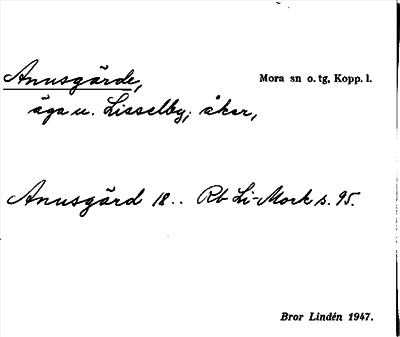 Anusgärde, Mora sn o. tg, Kopp. l.
äga u. Lisselby; åker,
Anusgärd 18.. Rb Li-Mork s. 95.
Bror Lindén 1947.